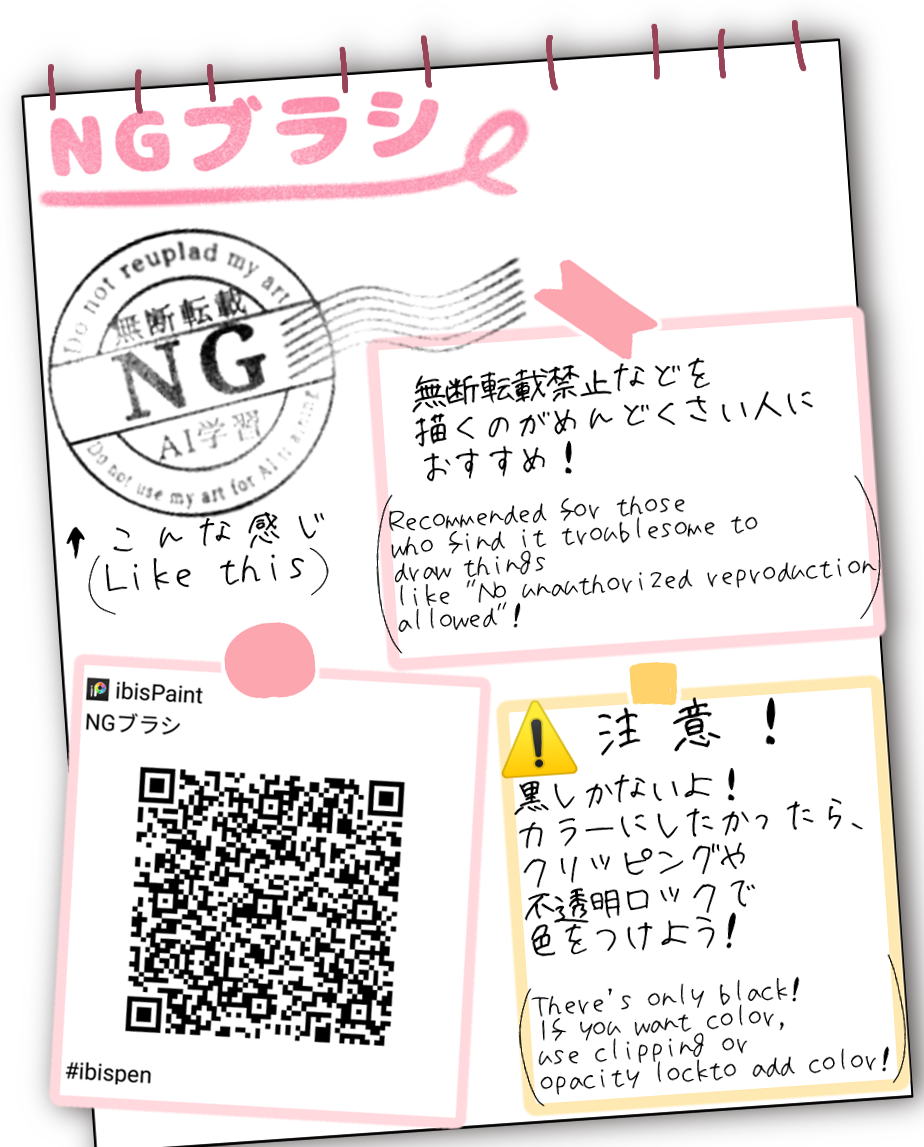 NGブラシ
Do not reuplad my art
無断転載
NG
AI学習
Do not use my art for AI training
↑こんな感じ
(Like this)
無断転載禁止などを
描くのがめんどくさい人に
おすすめ!
(Recommended for those
who find it troublesome to
draw things
like "No unauthorized reproduction
allowed"!)
ibisPaint
NGブラシ
#ibispen
注意!
黒しかないよ!
カラーにしたかったら、
クリッピングや
不透明ロックで
色をつけよう!
(There's only black!
If you want color,
use clipping or
opacity lockto add color!)